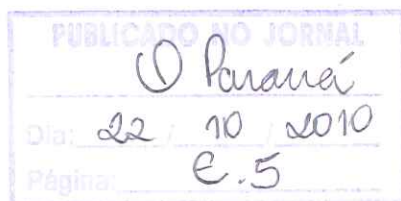 PUBLICADO NO JORNAL
O Paraná
Dia: 22 / 10 / 2010
Página: E.5